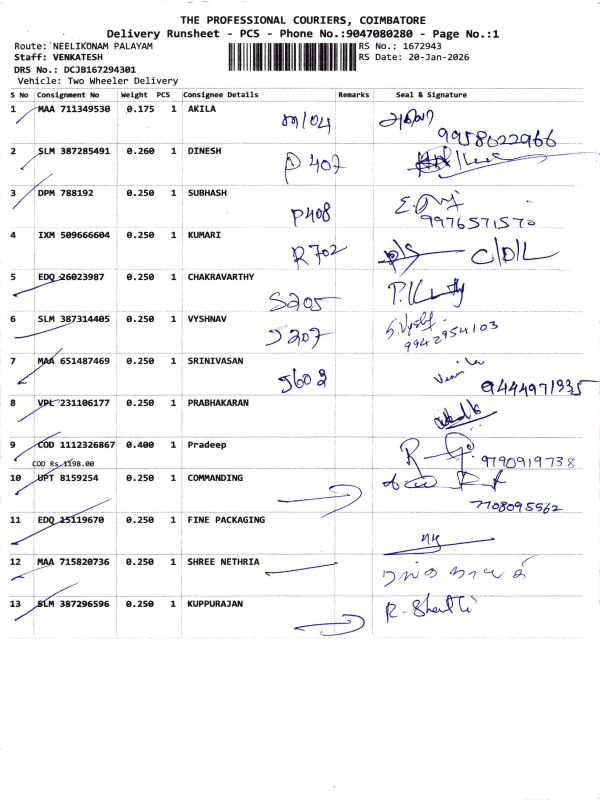 THE PROFESSIONAL COURIERS, COIMBATORE
Delivery Runsheet - PCS - Phone No.:9047080280 - Page No.:1
Route: NEELIKONAM PALAYAM RS No.: 1672943
Staff: VENKATESH RS Date: 20-Jan-2026
DRS No.: DCJB167294301
Vehicle: Two Wheeler Delivery
S No Consignment No Weight PCS Consignee Details Remarks Seal & Signature
1 MAA 711349530 0.175 1 AKILA
9958022966
2 SLM 387285491 0.260 1 DINESH P 407
3 DPM 788192 0.250 1 SUBHASH P408
9976571570
4 IXM 509666604 0.250 1 KUMARI R702
5 EDQ 26023987 0.250 1 CHAKRAVARTHY S205
6 SLM 387314405 0.250 1 VYSHNAV S207
9942954103
7 MAA 651487469 0.250 1 SRINIVASAN S603 9444971935
8 VPL 231106177 0.250 1 PRABHAKARAN
9 COD 1112326867 0.400 1 Pradeep 9790919738
COD Rs.1198.00
10 UPT 8159254 0.250 1 COMMANDING
7708095562
11 EDQ 15119670 0.250 1 FINE PACKAGING
12 MAA 715820736 0.250 1 SHREE NETHRIA
13 SLM 387296596 0.250 1 KUPPURAJAN